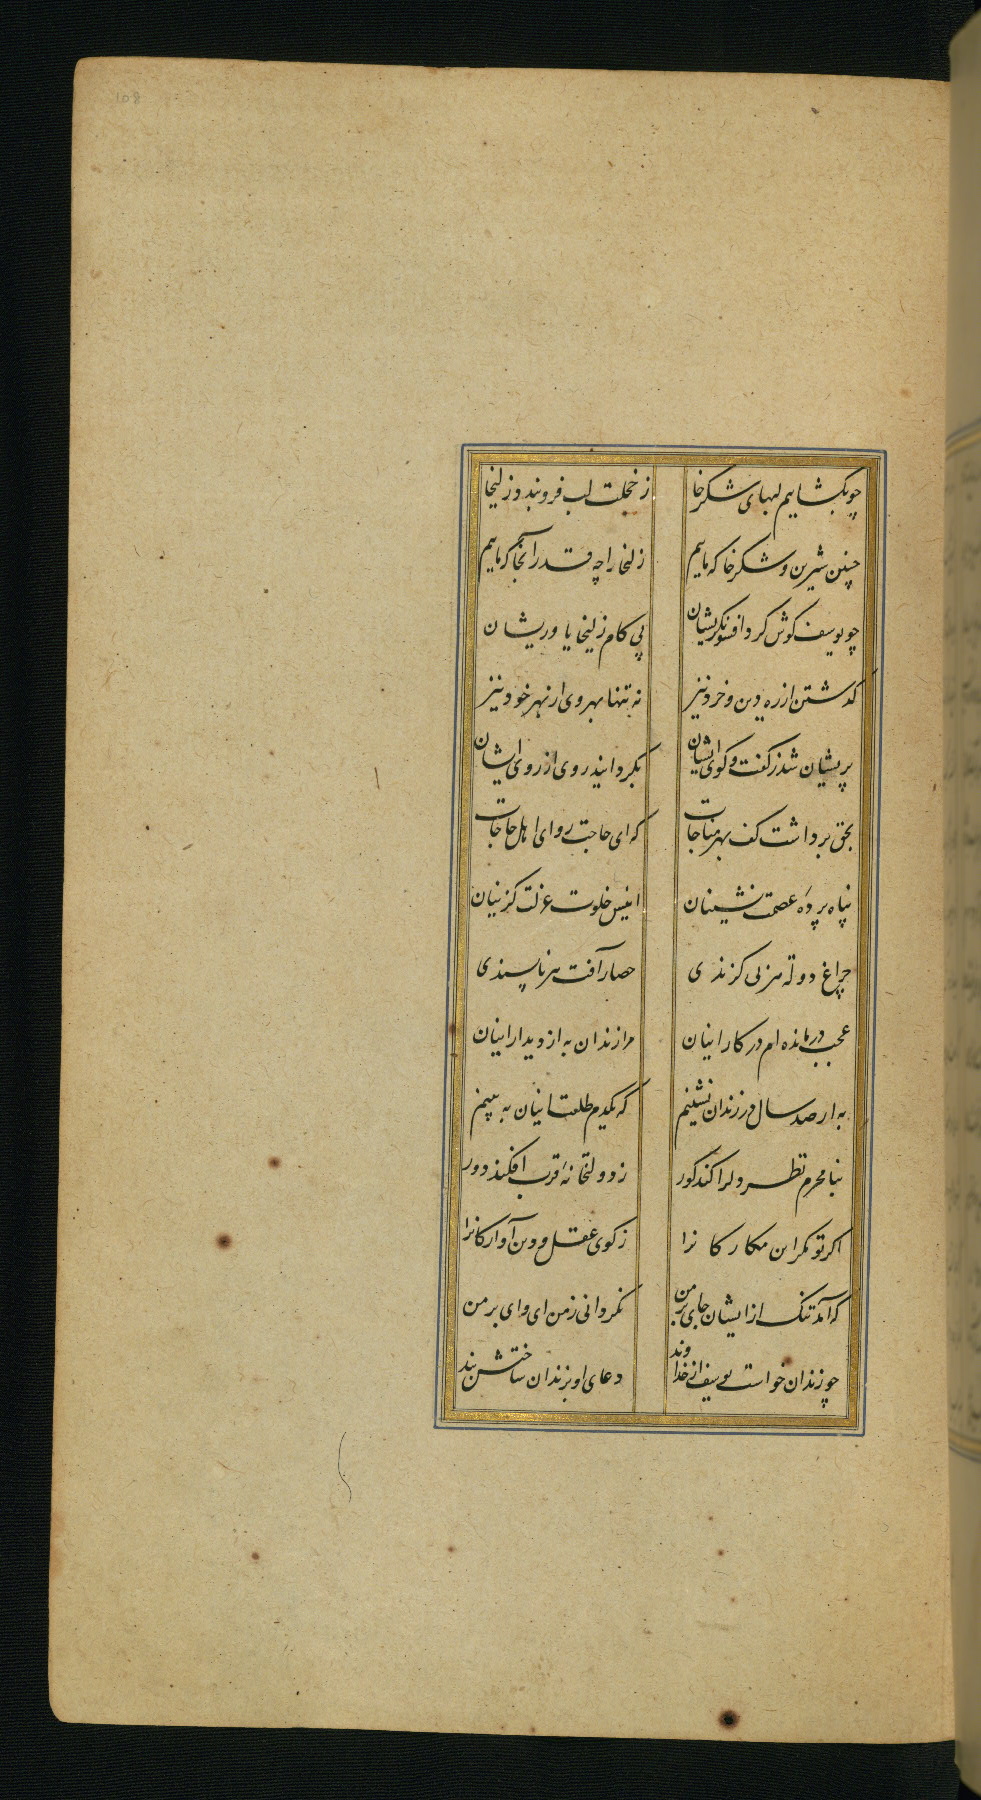 108
چو بکشاییم لبهای شکرخا
ز خجلت لب فرو بندد زلیخا
چنین شیرین و شکرخا که ماییم
زلیخا را چه قدر آنجا که ماییم
چو یوسف کوش کرد افسونکریشان
پی کام زلیخا یاوریشان
کذشتن از ره دین و خرد نیز
نه تنها بهر وی از بهر خود نیز
پریشان شد ز کفت و کوی ایشان
بکردانید روی از روی ایشان
بحق برداشت کف بهر مناجات
که ای حاجت روای اهل حاجات
پناه پرده عصمت نشینان
انیس خلوت عزلت کزینان
چراغ دولت هر بی کزندی
حصار آفت هر ناپسندی
عجب درمانده ام در کار اینان
مرا زندان به از دیدار اینان
به ار صد سال در زندان نشینم
که یکدم طلعت اینان به بینم
بنامحرم نظر دلرا کند کور
ز دولتخانه قرب افکند دور
اکر تو مکر این مکارکانرا
ز کوی عقل و دین آوارکانرا
که آمد تنک از ایشان جای بر من
نکردانی ز من ای وای بر من
چو زندان خواست یوسف از خداوند
دعای او بزندان ساختش بند